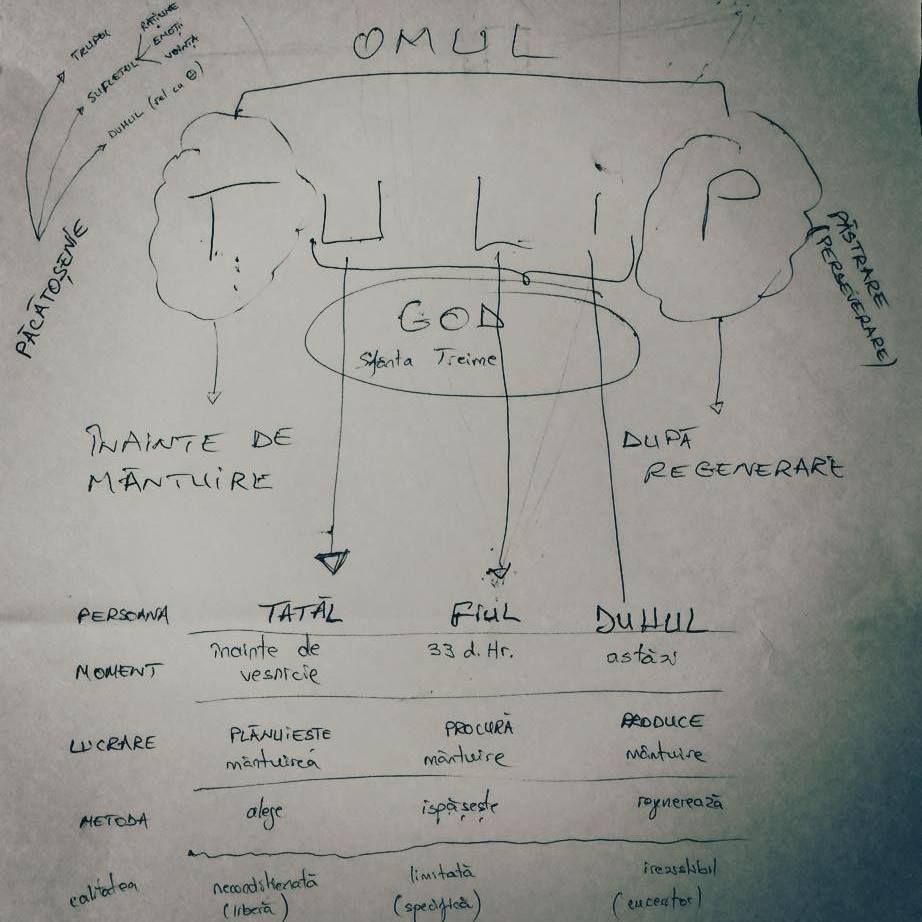 OMUL
TRUPUL
SUFLETUL
RAȚIUNE
EMOȚII
VOINȚA
DUHUL (rel cu
PĂCĂTOȘENIE
T U L i P
PĂSTRARE
(PERSEVERARE)
GOD
Sfanta Treime
ÎNAINTE DE
MÂNTUIRE
DUPĂ
REGENERARE
PERSOANA TATĂL FIUL DUHUL
MOMENT înainte de 33 d. Hr. astăzi
vesnicie
LUCRARE PLĂNUIESTE PROCURĂ PRODUCE
mântuirea mântuire mântuire
METODA alege ispășește regnerează
calitatea limitată
(liberă) (specifică)